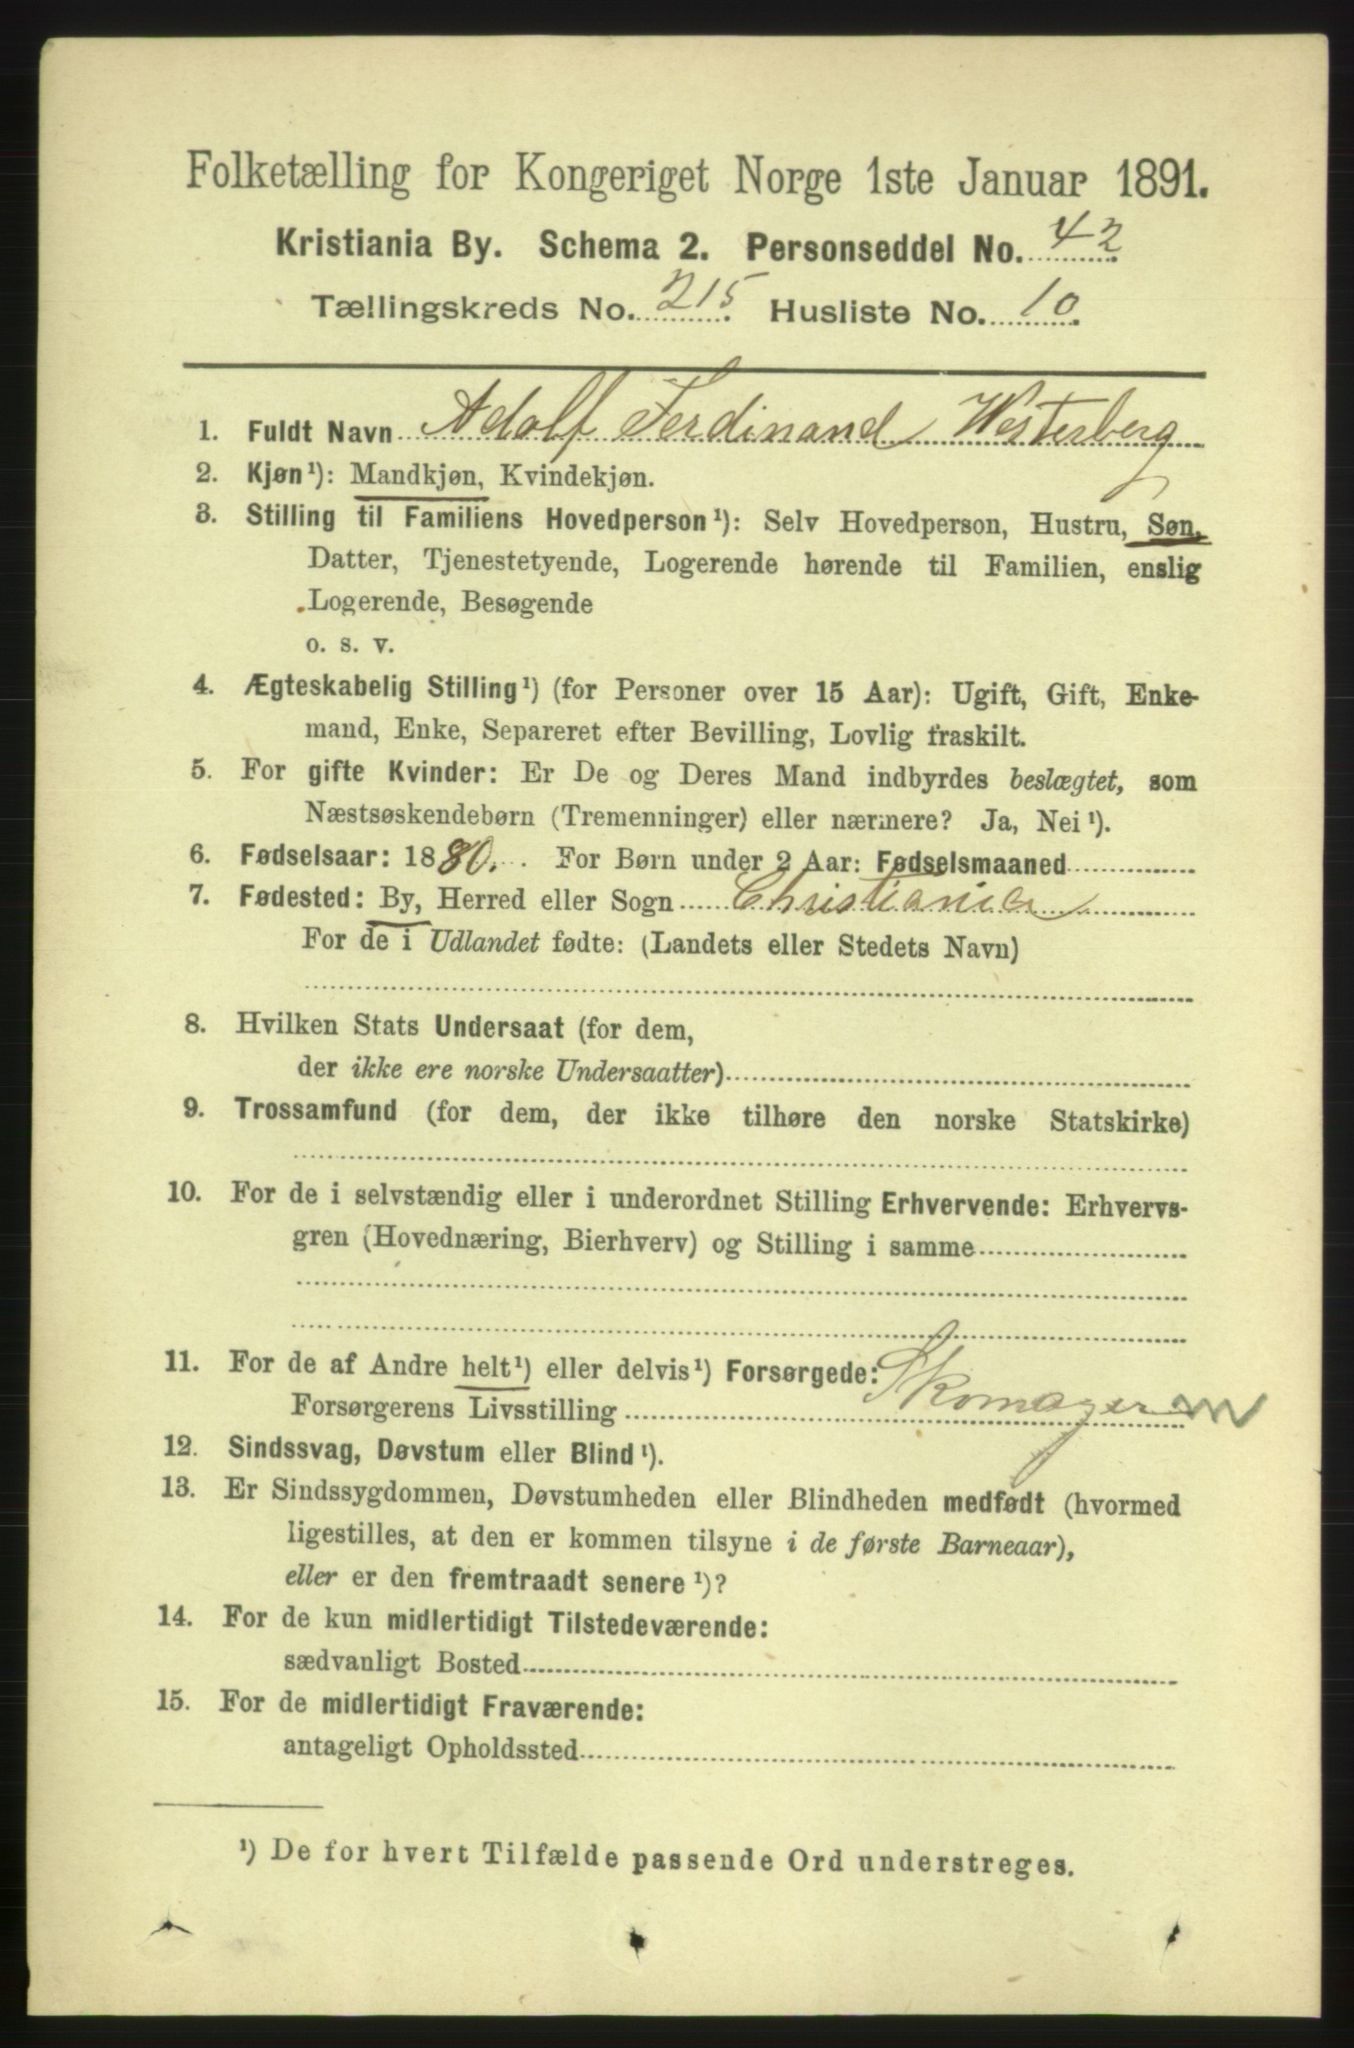 Folketælling for Kongeriget Norge 1ste Januar 1891.
Kristiania By. Schema 2. Personseddel No. 42
Tællingskreds No. 215. Husliste No. 10.
1. Fuldt Navn Adolf Ferdinand Westerberg
2. Kjøn¹): Mandkjøn, Kvindekjøn.
3. Stilling til Familiens Hovedperson¹): Selv Hovedperson, Hustru, Søn,
Datter, Tjenestetyende, Logerende hørende til Familien, enslig
Logerende, Besøgende
o. s. v.
4. Ægteskabelig Stilling¹) (for Personer over 15 Aar): Ugift, Gift, Enke-
mand, Enke, Separeret efter Bevilling, Lovlig fraskilt.
5. For gifte Kvinder: Er De og Deres Mand indbyrdes beslægtet, som
Næstsøskendebørn (Tremenninger) eller nærmere? Ja, Nei¹).
6. Fødselsaar: 1880. For Børn under 2 Aar: Fødselsmaaned
7. Fødested: By, Herred eller Sogn Christiania
For de i Udlandet fødte: (Landets eller Stedets Navn)
8. Hvilken Stats Undersaat (for dem,
der ikke ere norske Undersaatter)
9. Trossamfund (for dem, der ikke tilhøre den norske Statskirke)
10. For de i selvstændig eller i underordnet Stilling Erhvervende: Erhvervs-
gren (Hovednæring, Bierhverv) og Stilling i samme
11. For de af Andre helt¹) eller delvis¹) Forsørgede:
Forsørgerens Livsstilling Skomager
12. Sindssvag, Døvstum eller Blind¹).
13. Er Sindssygdommen, Døvstumheden eller Blindheden medfødt (hvormed
ligestilles, at den er kommen tilsyne i de første Barneaar),
eller er den fremtraadt senere¹)?
14. For de kun midlertidigt Tilstedeværende:
sædvanligt Bosted
15. For de midlertidigt Fraværende:
antageligt Opholdssted
¹) De for hvert Tilfælde passende Ord understreges.